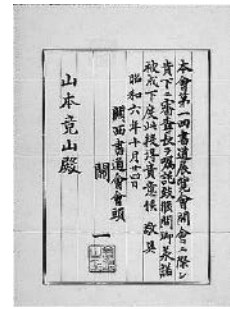 本會第一回書道展覽會開會ニ際シ
貴下ニ審査長ヲ囑託致候間御承諾
被成下度此段得貴意候 敬具
昭和六年十月廿四日
關西書道會會頭
關 一
山本竟山殿